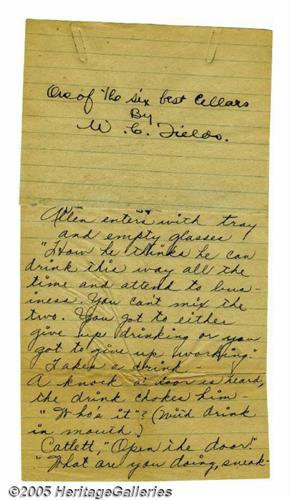 One of The six best Cellars
By
W. C. Fields.
Allen enters with tray
and empty glasses
"How he thinks he can
drink this way all the
time and attend to bus-
iness. You can't mix the
two. You got to either
give up drinking or you
got to give up working."
Takes a drink-
A knock @ door is heard,
the drink chokes him-
"Who's it"? (With drink
in mouth)
Catlett, "Open the door."
"What are you doing, sneak-
©2005 HeritageGalleries